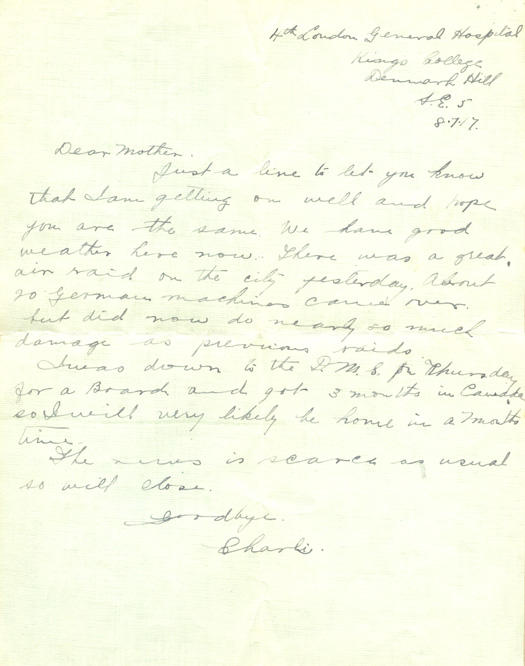 4th London General Hospital
Kings College
Denmark Hill
S.E. 5
8.7.17.
Dear Mother.
Just a line to let you know
that I am getting on well and hope
you are the same. We have good
weather here now. There was a great
air raid on the city yesterday. About
20 German machines came over.
but did now do nearly so much
damage as previous raids
I was down to the D. M. S. on Thursday
for a Board and got 3 months in Canada
so I will very likely be home in a months
time.
The news is scarce as usual
so will close.
Goodbye.
Charli.